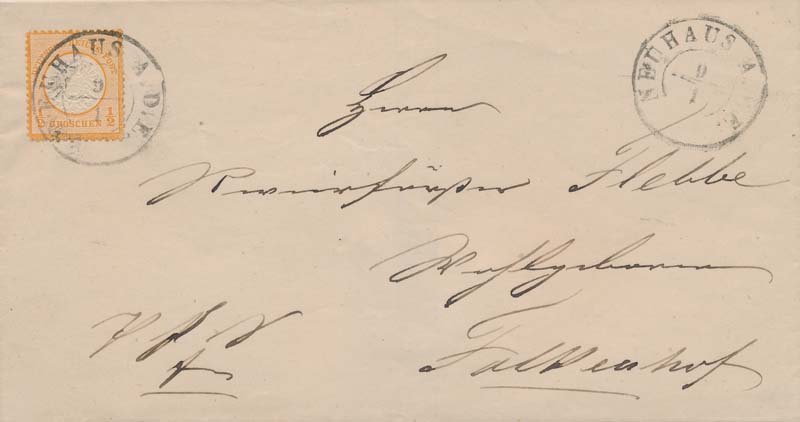 NEUHAUS A.D.E.
9
1
1/2 GROSCHEN 1/2
NEUHAUS A.D.E.
9
1
Herrn
Revierförster Flebbe
Wohlgeboren
Falkenhof